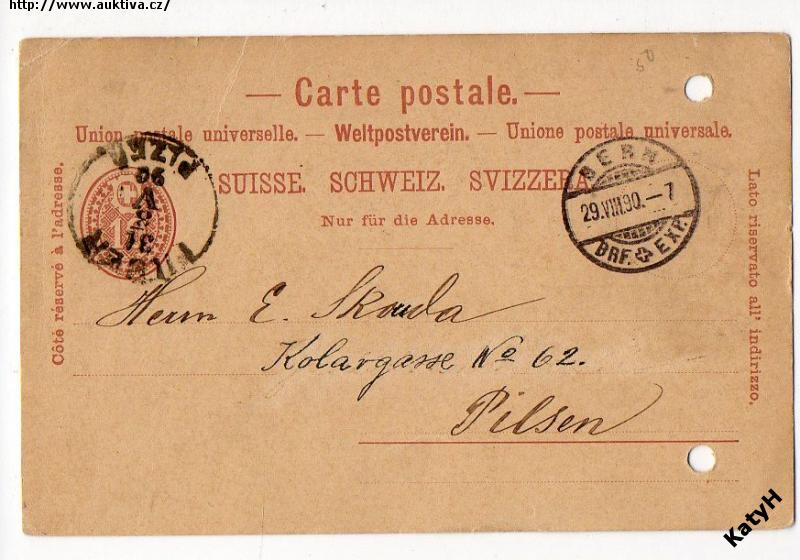 http://www.auktiva.cz/
— Carte postale. —
Union postale universelle. — Weltpostverein. — Unione postale universale.
SUISSE. SCHWEIZ. SVIZZERA.
Nur für die Adresse.
Côté réservé à l'adresse.
Lato riservato all' indirizzo.
PILSEN
31
90
PLZEŇ
BERN
29.VIII.90.–7
BRF. EXP.
Herrn E. Skouda
Kolargasse No 62.
Pilsen
KatyH